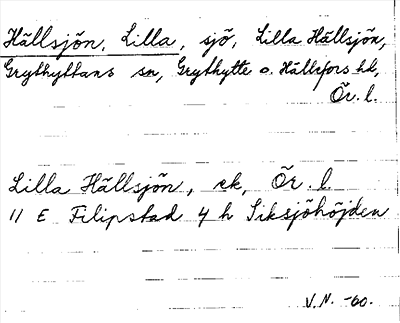 Hällsjön, Lilla, sjö, Lilla Hällsjön,
Grythyttans sn, Grythytte o. Hällefors hd,
Ör. l.
Lilla Hällsjön, ek, Ör. l.
11 E Filipstad 4 h Siksjöhöjden
V.N. -60.